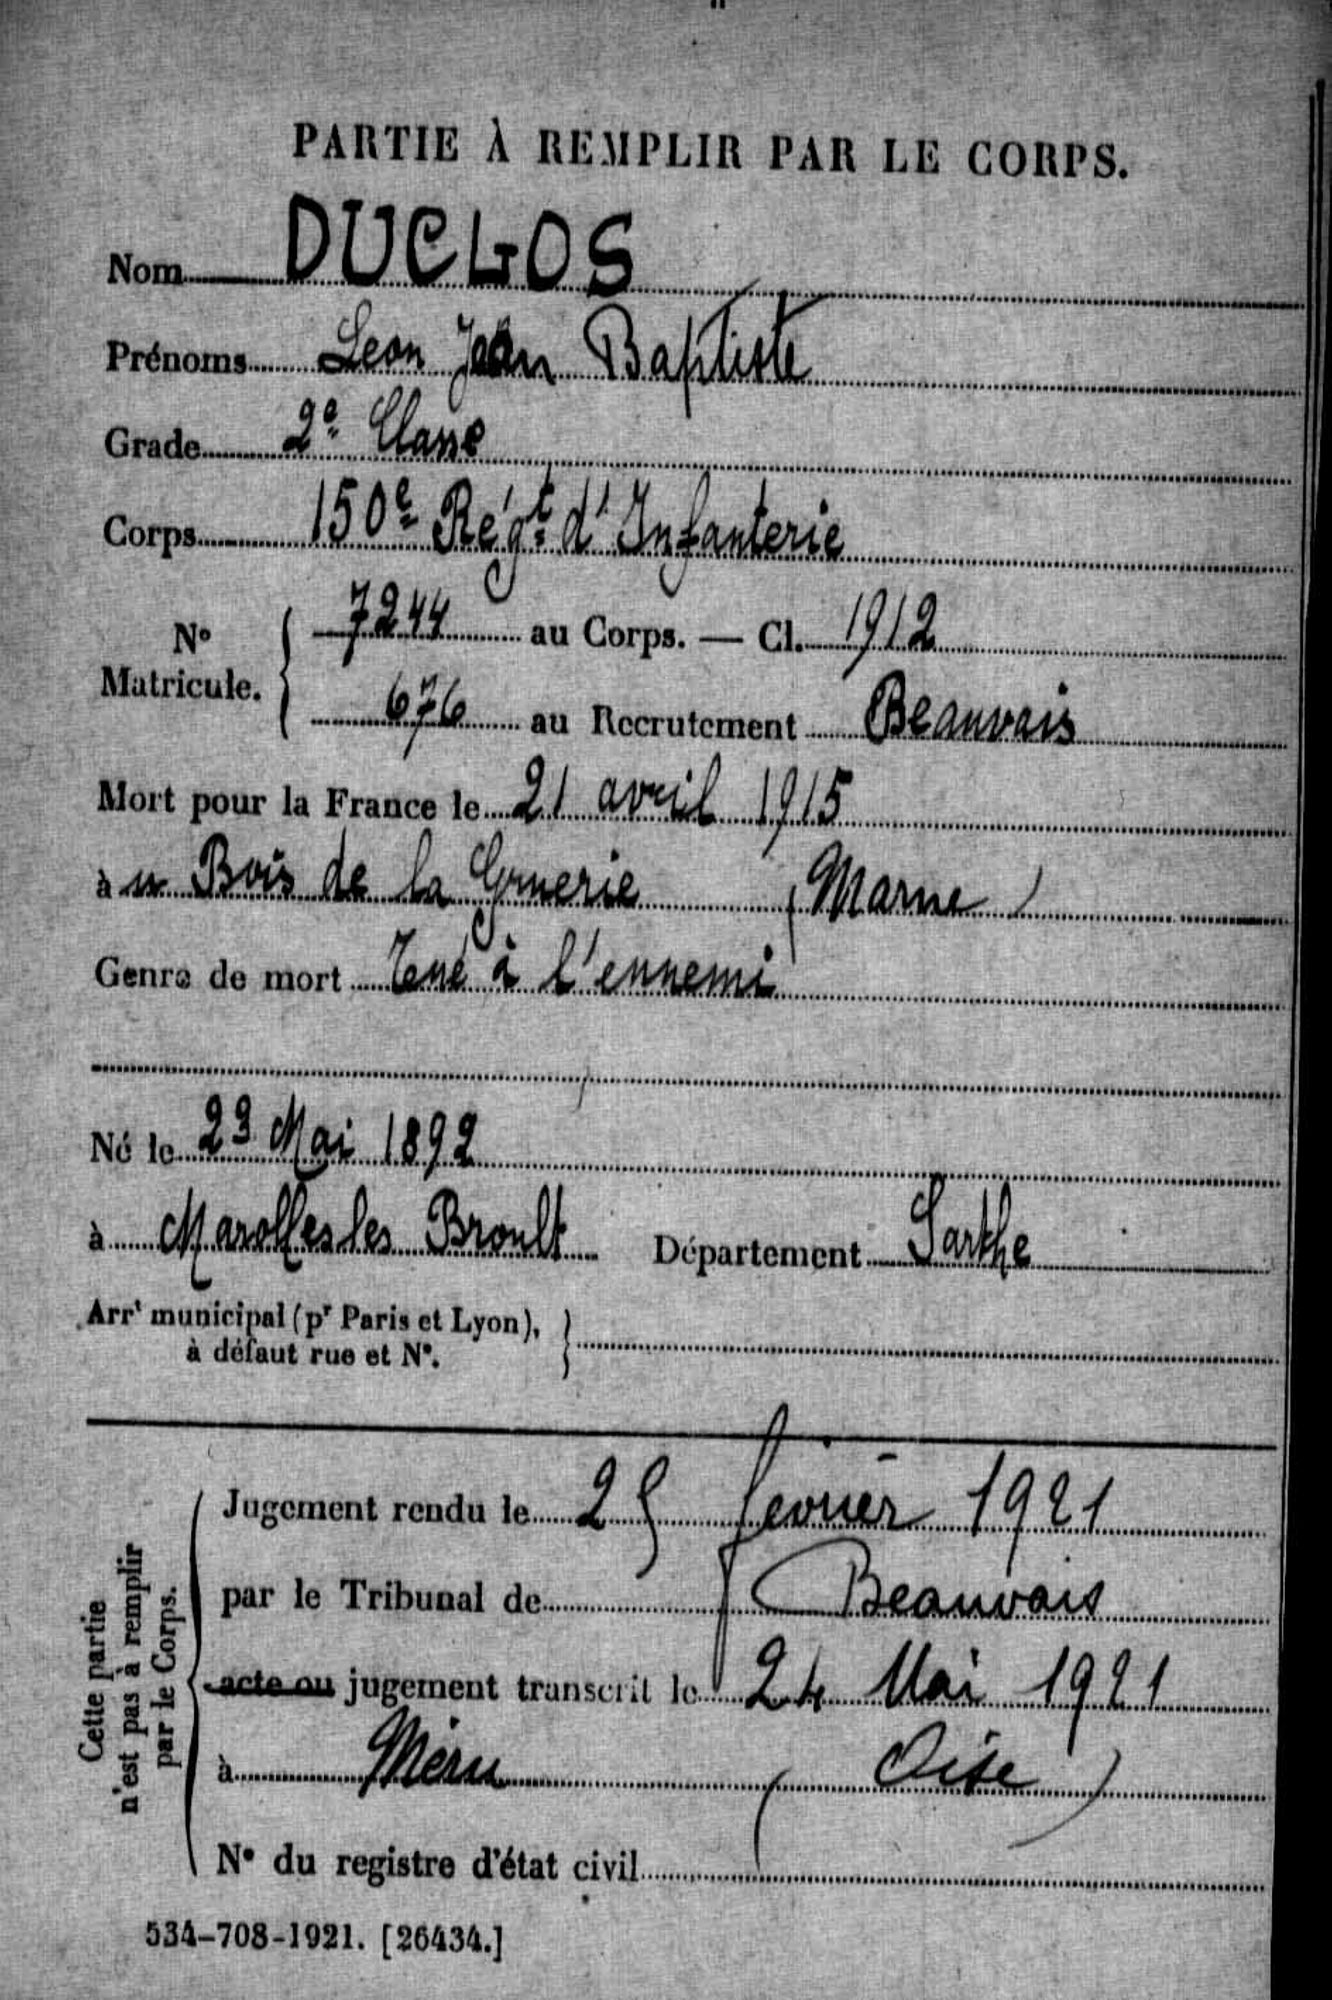 PARTIE À REMPLIR PAR LE CORPS.
Nom DUCLOS
Prénoms Leon Jean Baptiste
Grade 2e Classe
Corps 150e Régt d'Infanterie
No Matricule. { 7244 au Corps. — Cl. 1912
676 au Recrutement Beauvais
Mort pour la France le 21 avril 1915
à u Bois de la Grurie (Marne)
Genre de mort Tué à l'ennemi
Né le 23 Mai 1892
à Marolles les Broult Département Sarthe
Arrt municipal (pr Paris et Lyon), }
à défaut rue et No.
Cette partie
n'est pas à remplir
par le Corps.
Jugement rendu le 25 fevrier 1921
par le Tribunal de Beauvais
acte ou jugement transcrit le 24 Mai 1921
à Méru (Oise)
No du registre d'état civil
534-708-1921. [26434.]